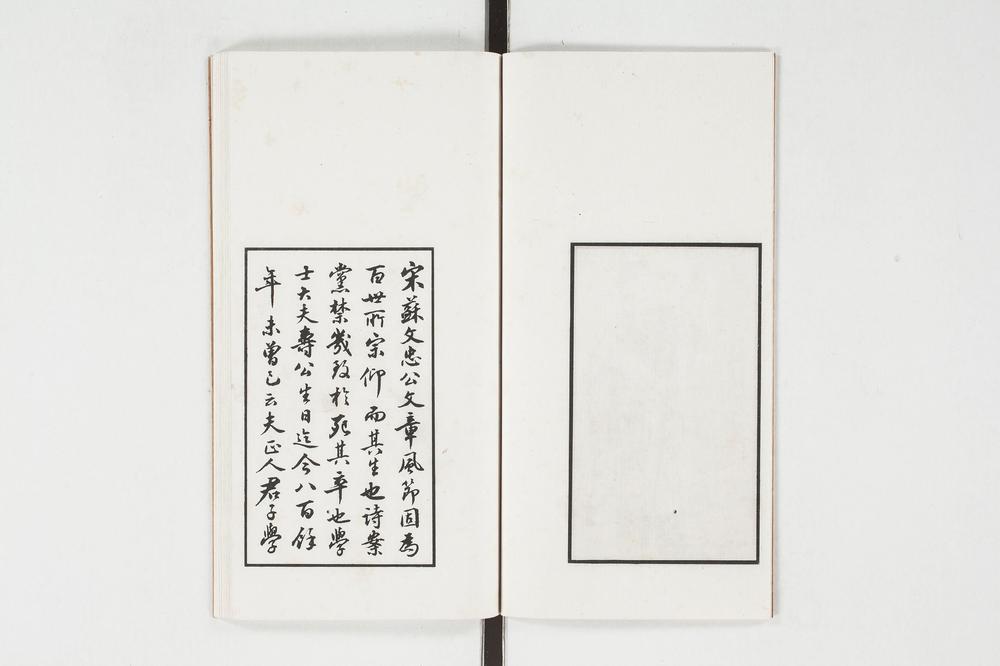 宋蘇文忠公文章風節固為
百世所宗仰而其生也詩案
黨禁幾致於死其卒也學
士大夫壽公生日迄今八百餘
年未曾已云夫正人君子學